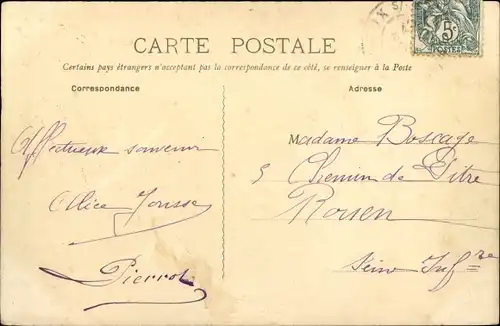 CARTE POSTALE
Certains pays étrangers n'acceptant pas la correspondance de ce côté, se renseigner à la Poste
Correspondance
Adresse
5c
POSTES
Affectueux souvenir
Alice Jousse
Pierrot
Madame Boscage
5 Chemin de Vitre
Rouen
Seine Infre